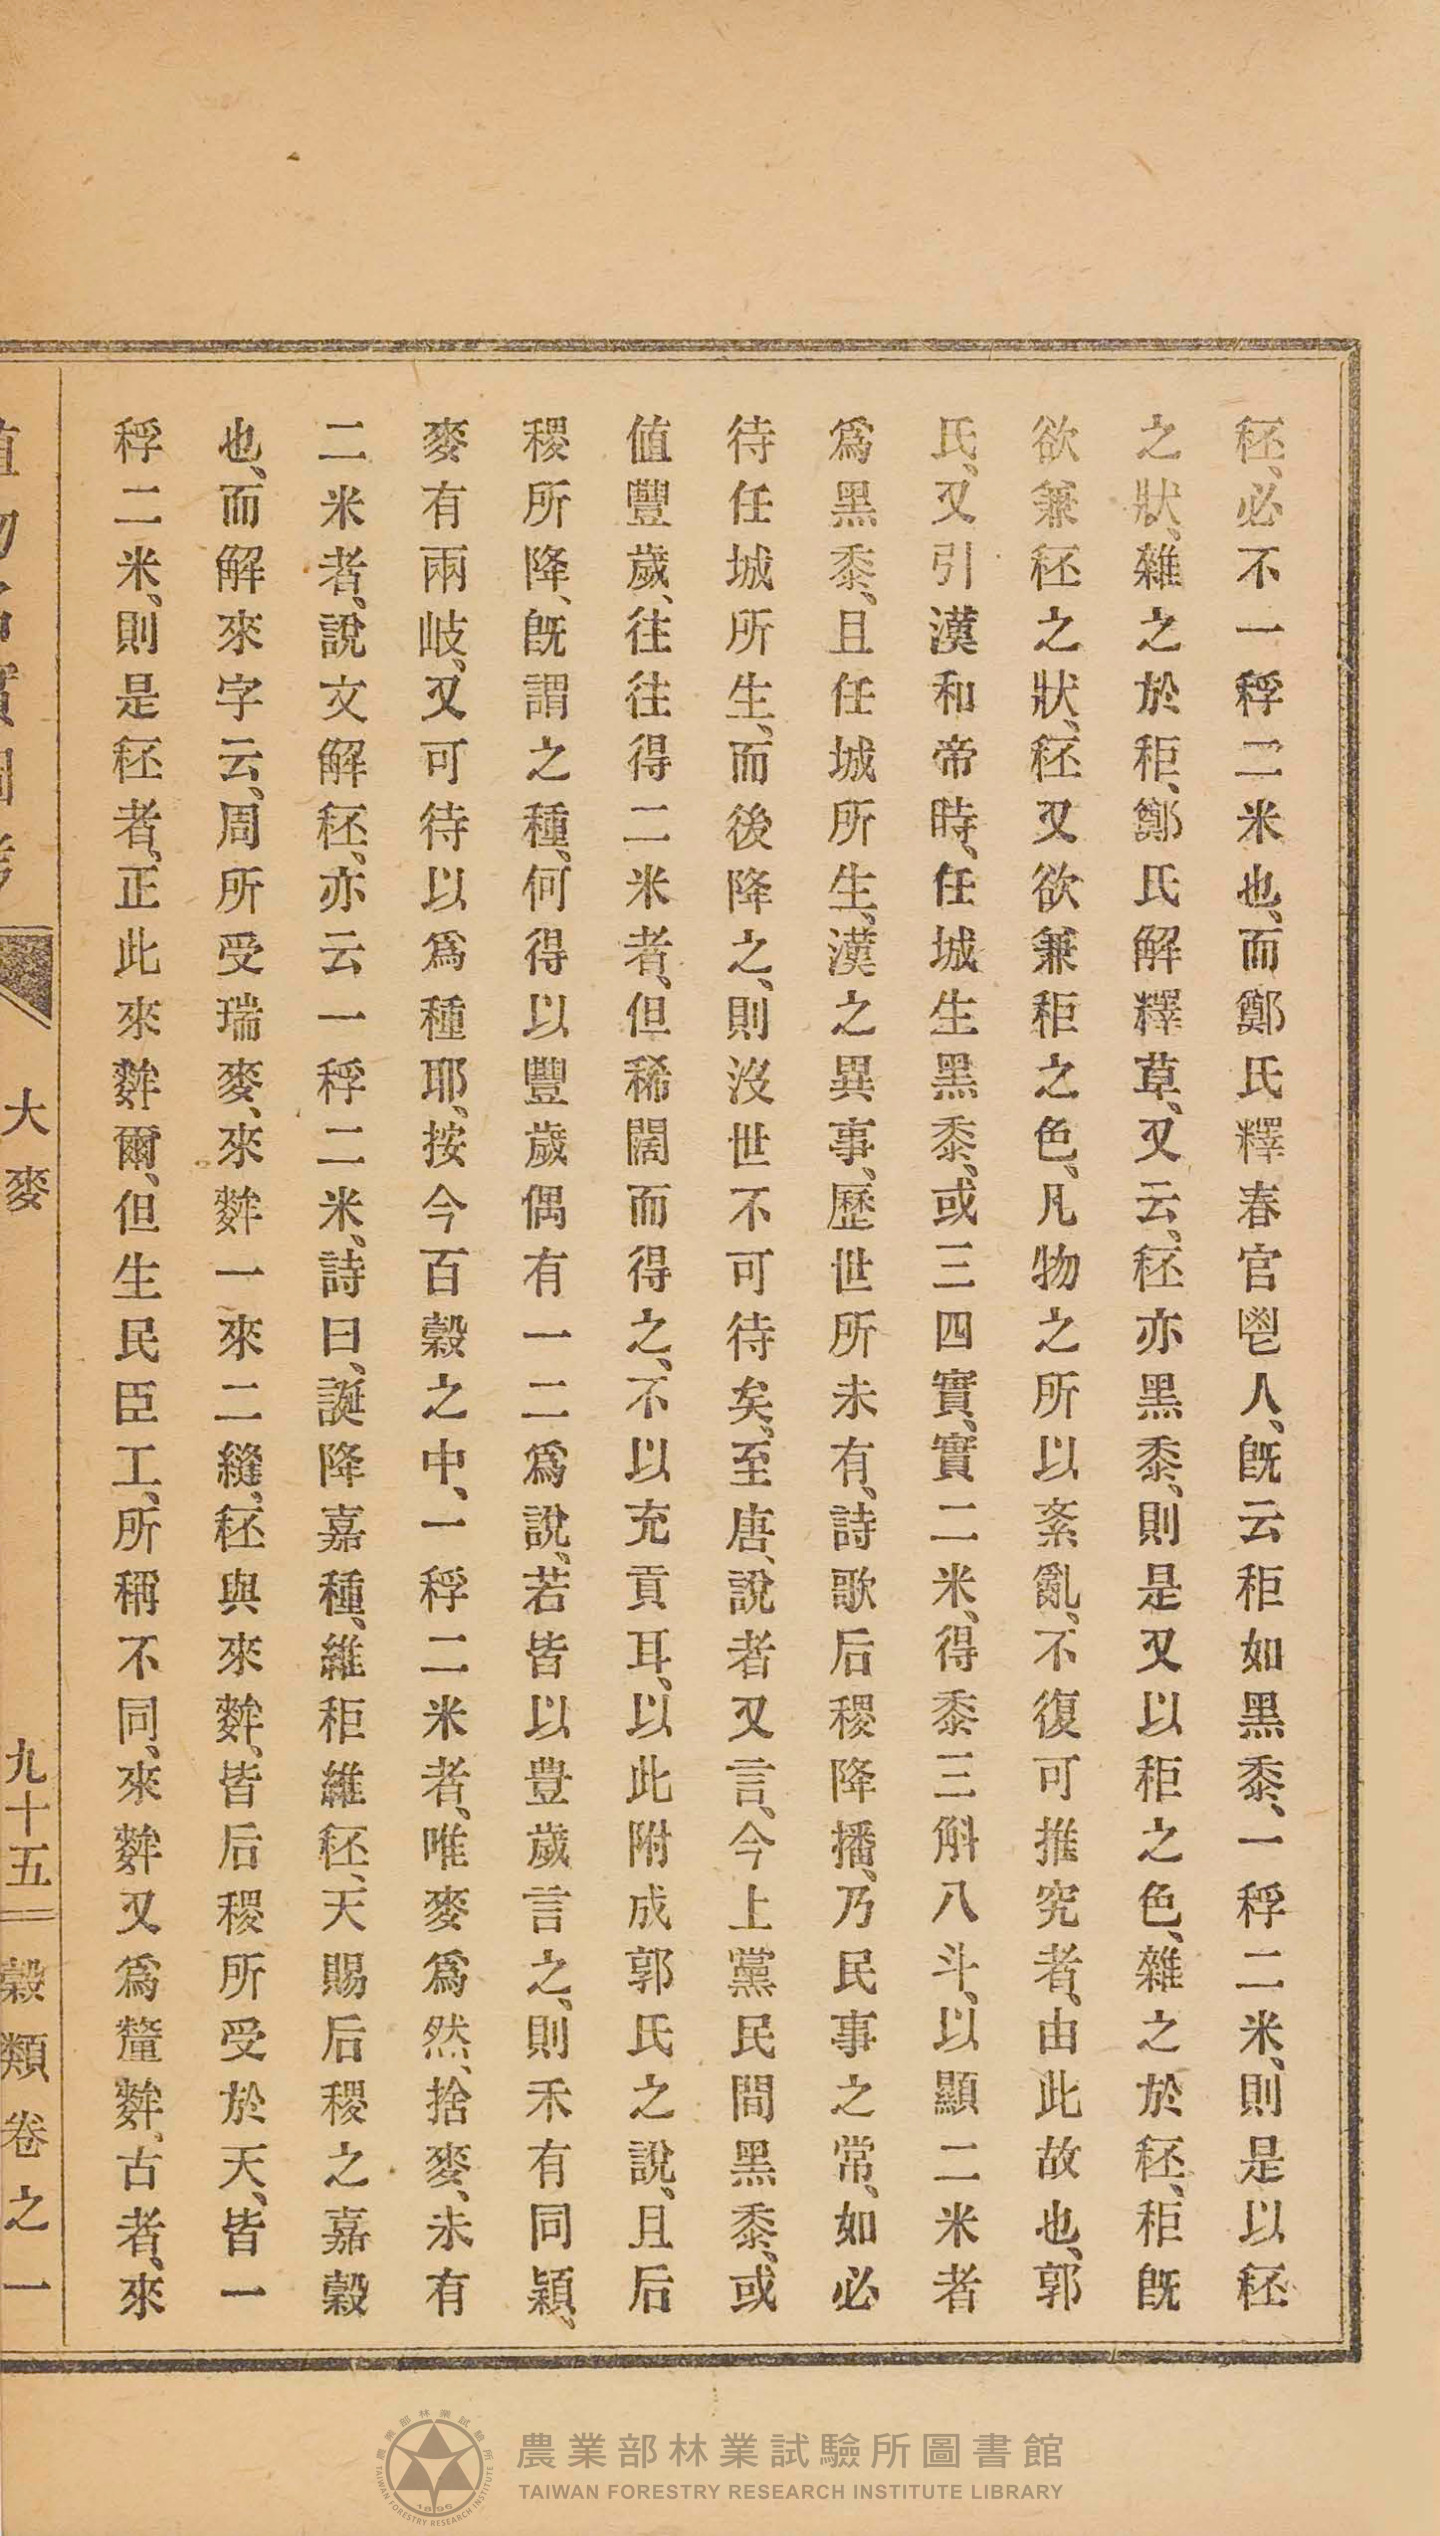 秠、必不一稃二米也、而鄭氏釋春官鬯人、旣云秬如黑黍、一稃二米、則是以秠
之狀、雜之於秬、鄭氏解釋草、又云、秠亦黑黍、則是又以秬之色、雜之於秠、秬旣
欲兼秠之狀、秠又欲兼秬之色、凡物之所以紊亂、不復可推究者、由此故也、郭
氏、又引漢和帝時、任城生黑黍、或三四實、實二米、得黍三斛八斗、以顯二米者
爲黑黍、且任城所生、漢之異事、歷世所未有、詩歌后稷降播、乃民事之常、如必
待任城所生、而後降之、則沒世不可待矣、至唐、說者又言、今上黨民間黑黍、或
値豐歲、往往得二米者、但稀闊而得之、不以充貢耳、以此附成郭氏之說、且后
稷所降、旣謂之種、何得以豐歲偶有一二爲說、若皆以豊歲言之、則禾有同穎、
麥有兩岐、又可待以爲種耶、按今百穀之中、一稃二米者、唯麥爲然、捨麥、未有
二米者、說文解秠、亦云一稃二米、詩曰、誕降嘉種、維秬維秠、天賜后稷之嘉穀
也、而解來字云、周所受瑞麥、來麰一來二縫、秠與來麰、皆后稷所受於天、皆一
稃二米、則是秠者、正此來麰爾、但生民臣工、所稱不同、來麰又爲釐麰、古者、來
植物名實圖考　大麥　九十五　穀類卷之一
農業部林業試驗所圖書館
TAIWAN FORESTRY RESEARCH INSTITUTE LIBRARY
農業部林業試驗所
TAIWAN FORESTRY RESEARCH INSTITUTE
1896